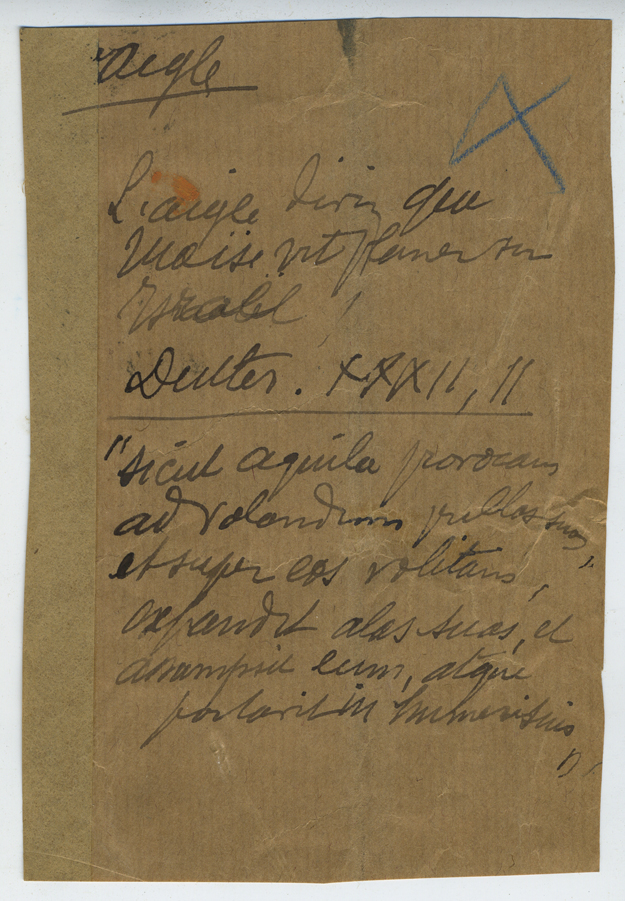 aigle
L'aigle divin que
Moïse vit planer sur
Israël
Deuter. XXXII, 11
"sicut aquila provocans
ad volandum pullos suos,
et super eos volitans,
expandit alas suas, et
assumpsit eum, atque
portavit in humeris suis
"